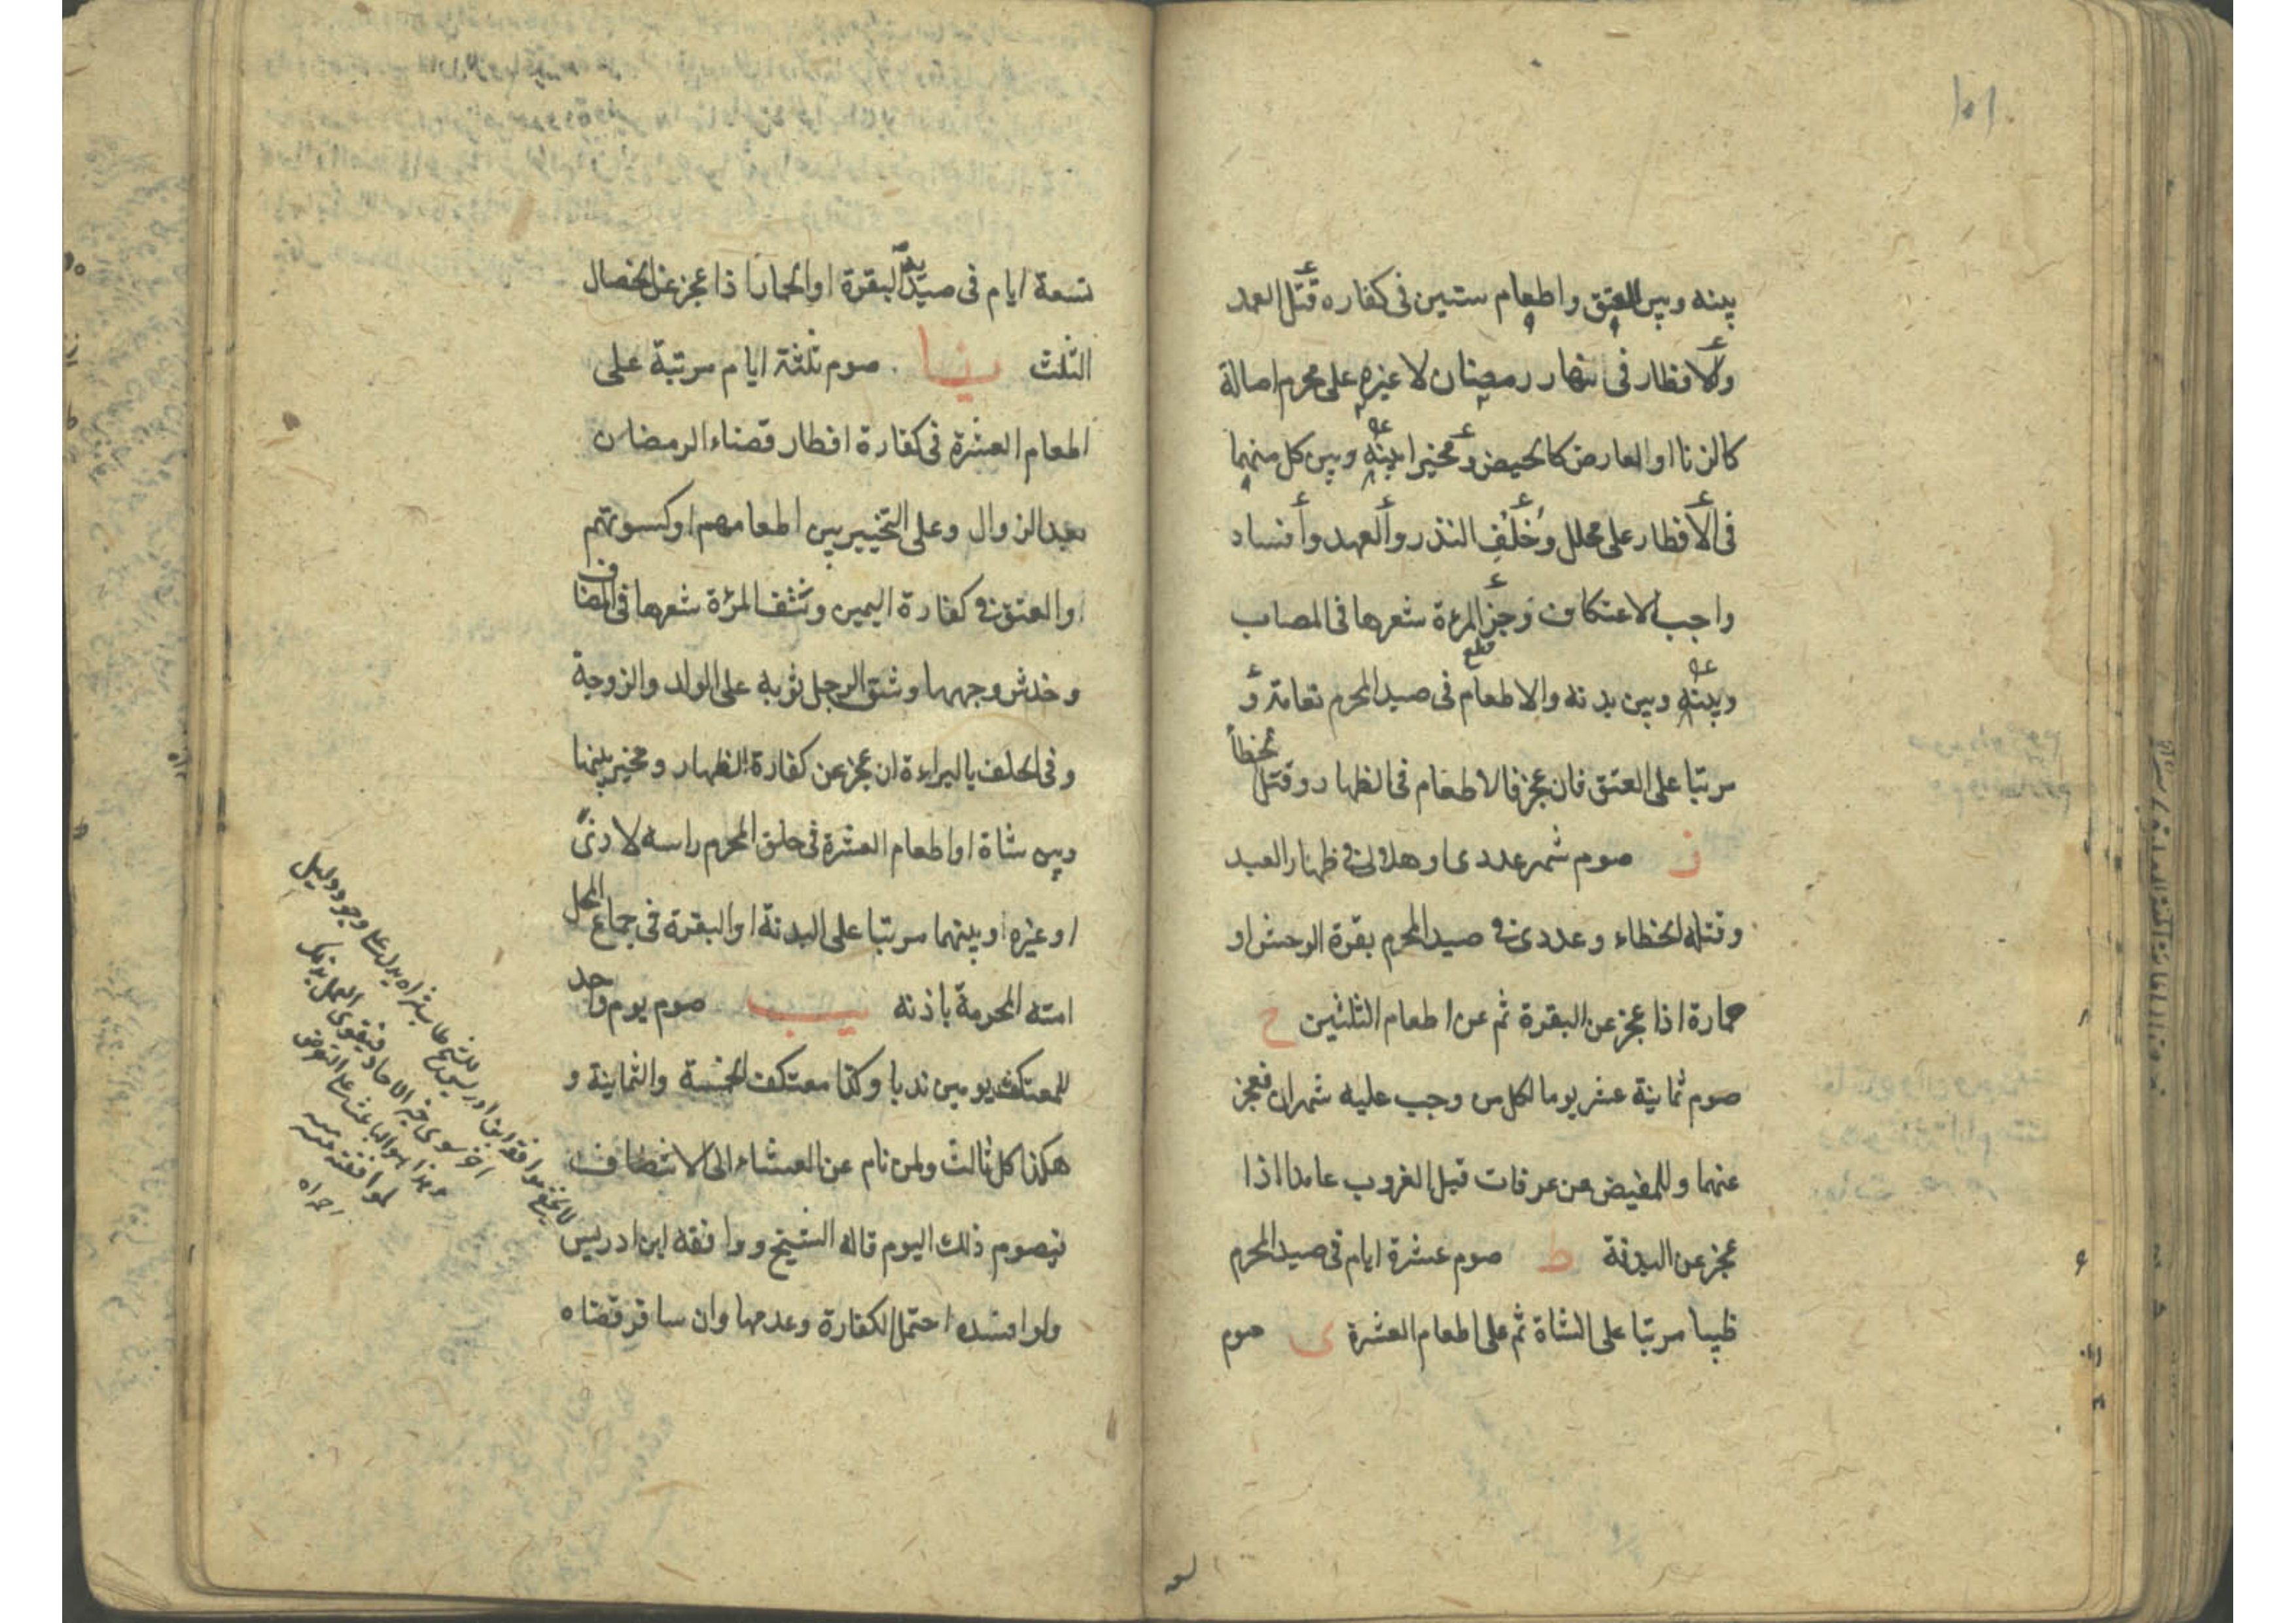 ١٥١
بينه وبين العتق واطعام ستين فى كفاره قتل العمد
والافطار فى نهار رمضان لا غيره على محرم اصالة
كالزنا او العارض كالحيض ومخيرا بينه وبين كل منهما
فى الافطار على محلل وخلف النذر والعهد وافساد
واجب الاعتكاف وجز المرءة شعرها فى المصاب
قطع
وبينه وبين بدنه والاطعام فى صيد المحرم نعامة و
مرتبا على العتق فان عجز فالاطعام فى الظهار وقتل الخطأ
ز صوم شهر عددى او هلالى فى ظهار العبد
وقتله الخطاء وعددى فى صيد المحرم بقرة الوحش او
حمارة اذا عجز عن البقرة ثم عن اطعام الثلثين ح
صوم ثمانية عشر يوما لكل من وجب عليه شهران فعجز
عنهما وللمفيض من عرفات قبل الغروب عامدا اذا
عجز عن البدنة ط صوم عشرة ايام فى صيد المحرم
ظبيا مرتبا على الشاة ثم على اطعام العشرة ى صوم
تسعة ايام فى صيد البقرة او الحمار اذا عجز عن الخصال
الثلث يا صوم ثلثة ايام مرتبة على
اطعام العشرة فى كفارة افطار قضاء الرمضان
بعد الزوال وعلى التخيير بين اطعامهم او كسوتهم
او العتق فى كفارة اليمين ونتف المرأة شعرها فى المصاب
وخدش وجهها وشق الرجل ثوبه على الولد والزوجة
وفى الحلف بالبراءة ان عجز عن كفارة الظهار ومخير بينها
وبين شاة او اطعام العشرة فى حلق المحرم راسه لاذى
او غيره او بينهما مرتبا على البدنة او البقرة فى جماع المحل
امته المحرمة باذنه يب صوم يوم واحد
للمعتكف يومين ندبا وكذا معتكف الخمسة والثمانية و
هكذا كل ثالث ولمن نام عن العشاء الى الانتصاف
فيصوم ذلك اليوم قاله الشيخ ووافقه ابن ادريس
ولو افسده احتمل الكفارة وعدمها وان سافر قضاه